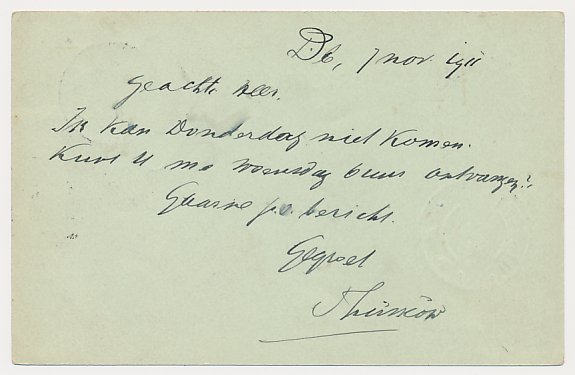 Db, 7 nov. 1911
Geachte Heer.
Ik kan Donderdag niet komen.
Kunt U me woensdag 6 uur ontvangen?
Gaarne p.o. bericht.
Gegroet